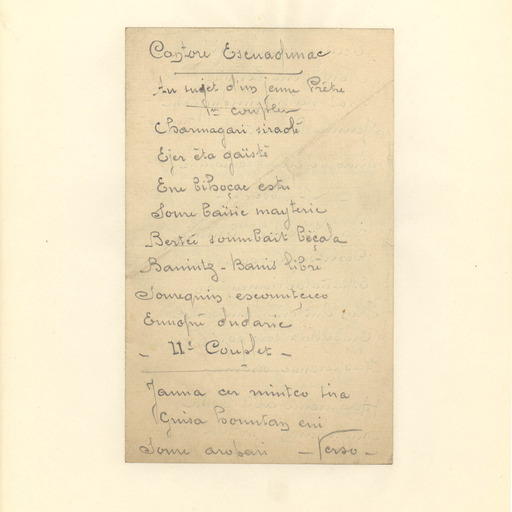 Cantore Escuaqunac
Au sujet d'un jeune Prêtre
1er couplet
Charmagari siradé
Ejer éta gaïsté
Ene bihoçac estu
Somu baïsic mayteric
Bertéi soumbaït béçala
Banintz - Banis libré
Sourequin escountceco
Ennuké dudaric
- IIe Couplet -
Janna cer mintço tira
Guisa hountan eni
Somu arobari - Verso -